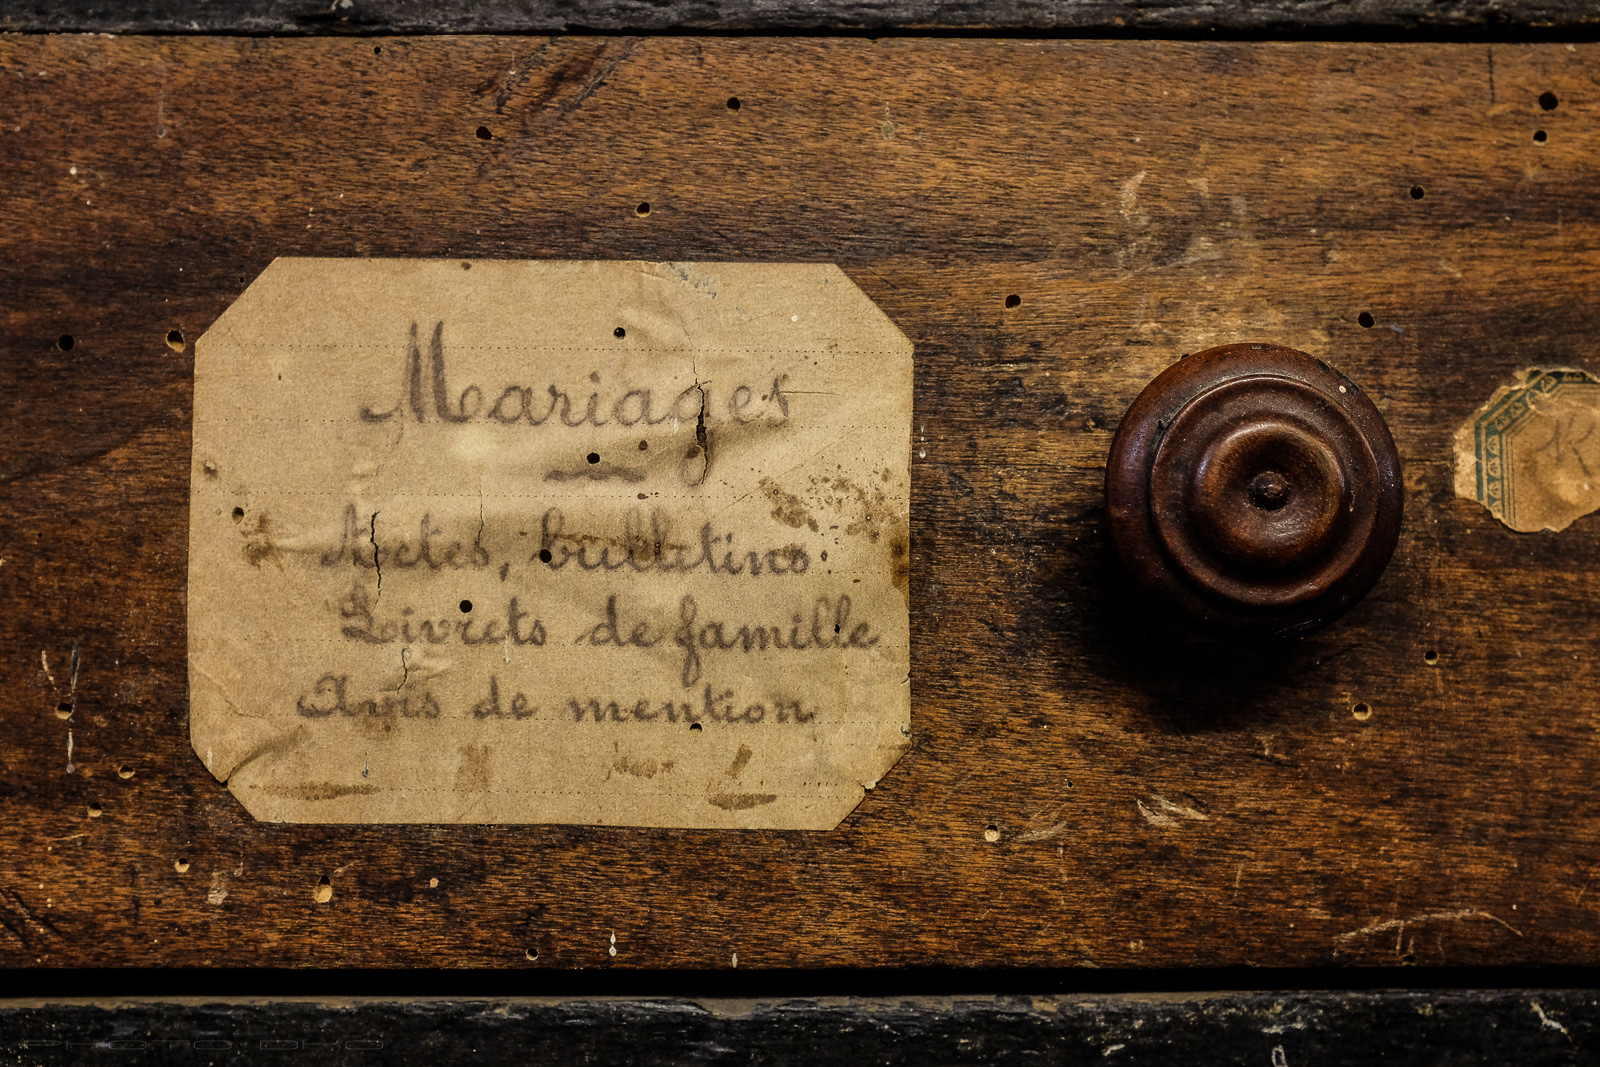 Mariages
Actes, bulletins
Livrets de famille
Avis de mention
PHOTO DKO